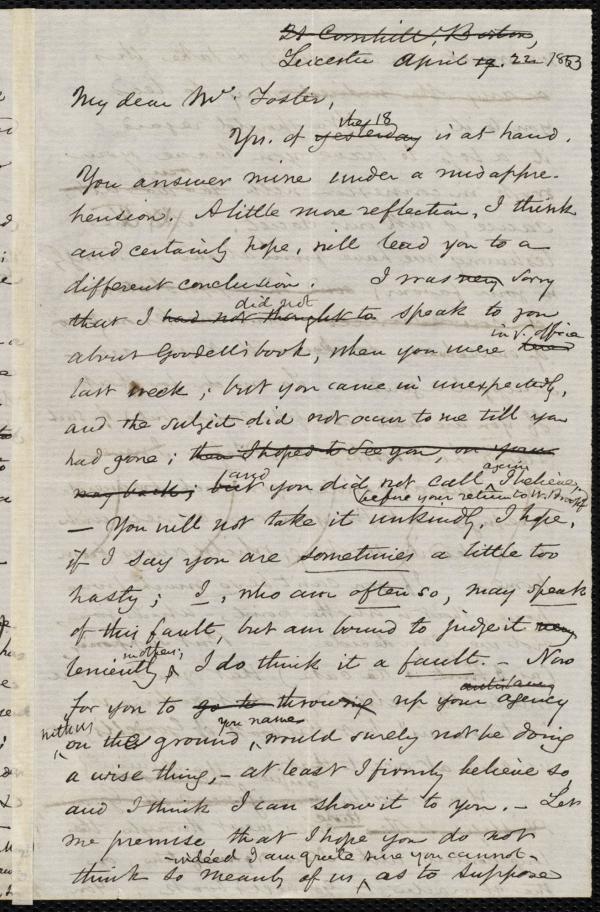 21 Cornhill, Boston,
Leicester April 19. 22 1853
My dear Mr. Foster,
the 18
Yrs. of yesterday is at hand.
You answer mine under a misappre-
hension. A little more reflection, I think
and certainly hope, will lead you to a
different conclusion. I was very sorry
did not
that I had not thought to speak to you
in V. office
about Goodell's book, when you were
last week; but you came in unexpectedly,
and the subject did not occur to me till you
had gone; then I hoped to see you, on your
and again
way back; but you did not call, I believe,
before your return to W. Brookf
— You will not take it unkindly, I hope,
if I say you are sometimes a little too
hasty; I, who am often so, may speak
of this fault, but am bound to judge it very
in others;
leniently, I do think it a fault. — Now
antislavy
for you to go to throwing up your agency
with us you name
on the ground, would surely not be doing
a wise thing, — at least I firmly believe so
and I think I can show it to you. — Let
me premise that I hope you do not
— indeed I am quite sure you cannot —
think so meanly of us, as to suppose